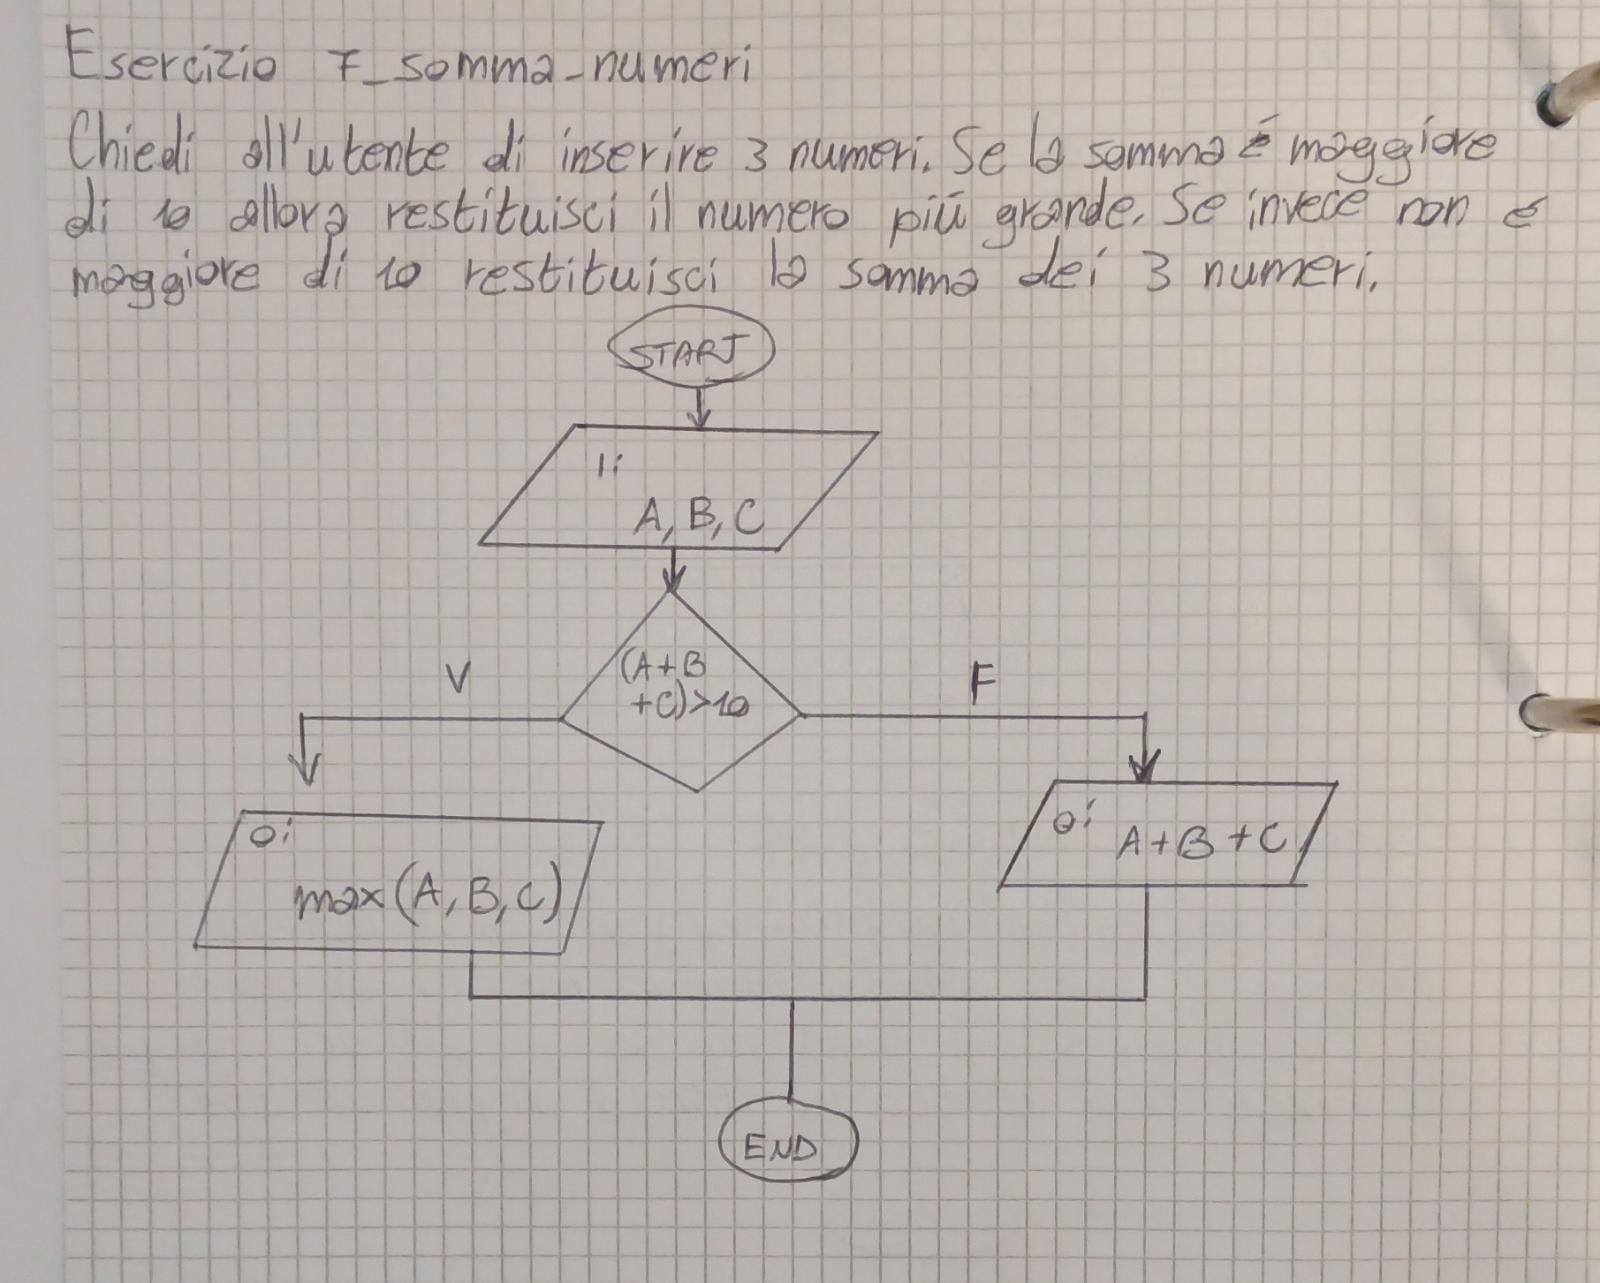 Esercizio 7_somma_numeri
Chiedi all'utente di inserire 3 numeri. Se la somma é maggiore
di 10 allora restituisci il numero più grande. Se invece non é
maggiore di 10 restituisci la somma dei 3 numeri.
START
I:
A, B, C
(A+B
+C)>10
V
F
O:
max(A, B, C)
O:
A+B+C
END